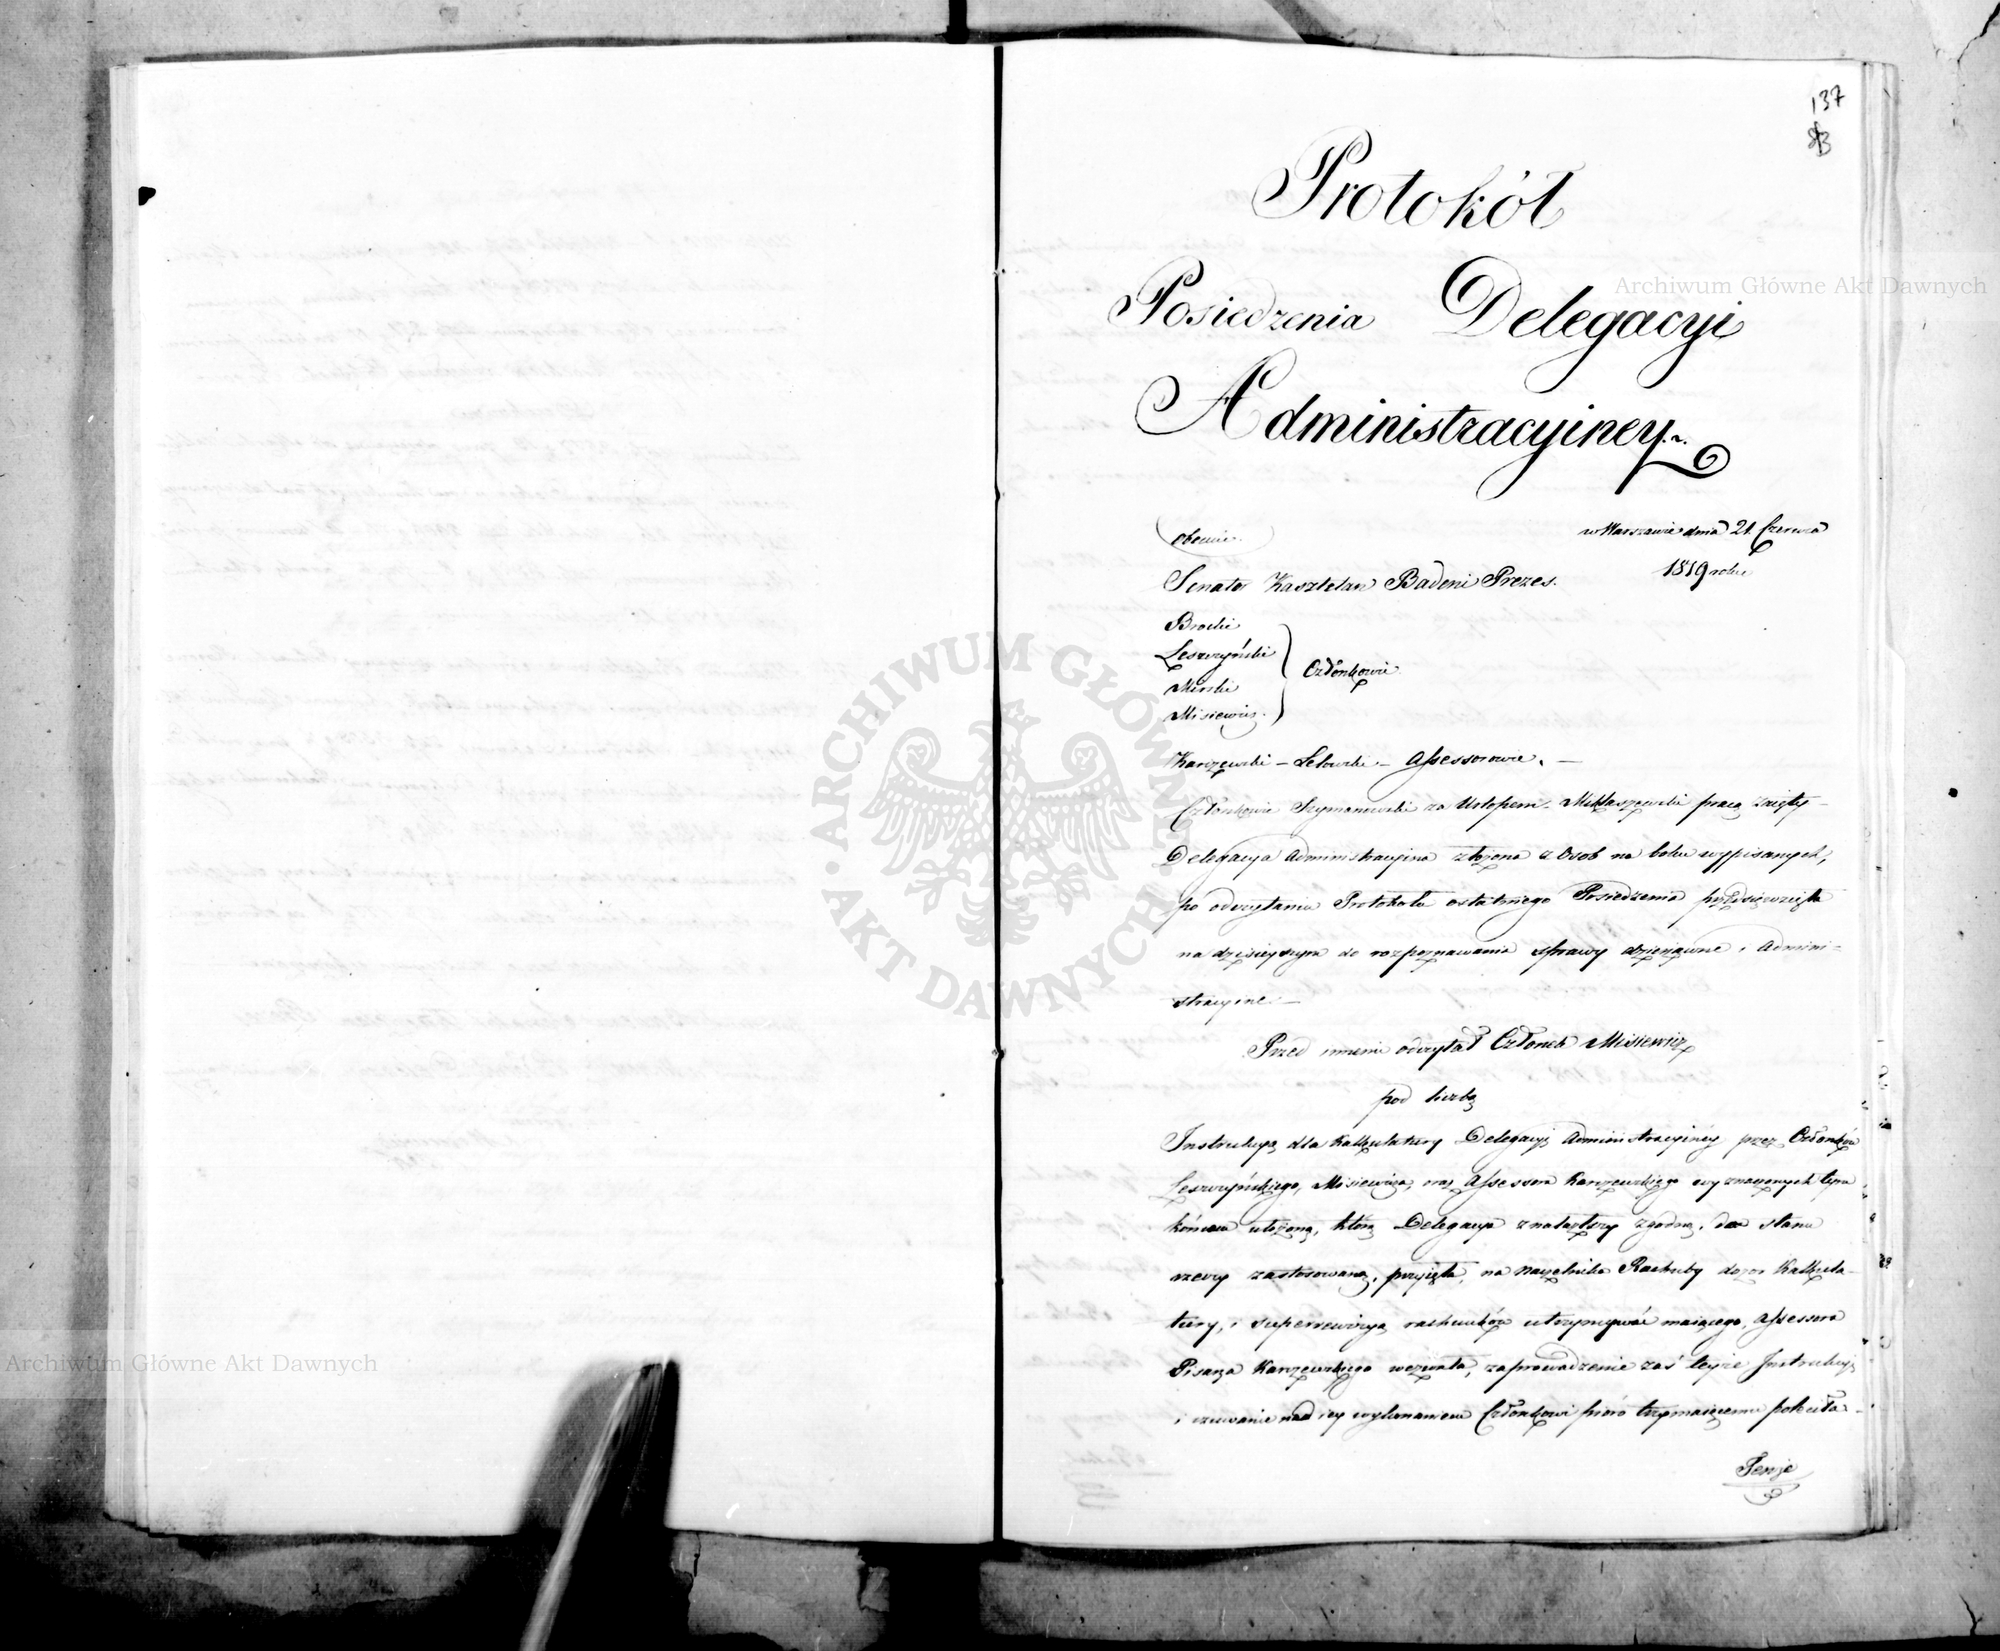 137
Protokół
Posiedzenia Delegacyi
Administracyiney
w Warszawie dnia 21 Czerwca
1819 roku
obecni.
Senator Kasztelan Badeni Prezes.
Brocki
Leszczyński
Mirski
Misiewicz.
Członkowie.
Karczewski – Lelowski – Assessorowie. –
Członkowie Szymanowski za Urlopem – Mikłaszewski pracą zaięty –
Delegacya Administracyina złożona z Osob na boku wypisanych,
po odczytaniu Protokołu ostatniego Posiedzenia przedsięwzięła
na dzisieyszym do rozpoznawania sprawy dzierżawne i Admini-
stracyine. –
Przed innemi odczytał Członek Misiewicz
pod liczbą
Instrukcyą dla Kalkulatury Delegacyi Administracyiney przez Członków
Leszczyńskiego, Misiewicza, oraz Assessora Karczewskiego wyznaczonych tym
końcem ułożoną, którą Delegacya znalazłszy zgodną, do stanu
rzeczy zastosowaną, przyięła, na Naczelnika Rachuby dozor Kalkula-
tury, i superrewizyą rachunków utrzymywać maiącego, Assessora
Pisarza Karczewskiego wezwała, zaprowadzenie zaś teyże Instrukcyi
i czuwanie nad iey wykonaniem Członkowi pióro trzymaiącemu poleciła. –
Tenże
Archiwum Główne Akt Dawnych
ARCHIWUM GŁÓWNE AKT DAWNYCH
Archiwum Główne Akt Dawnych